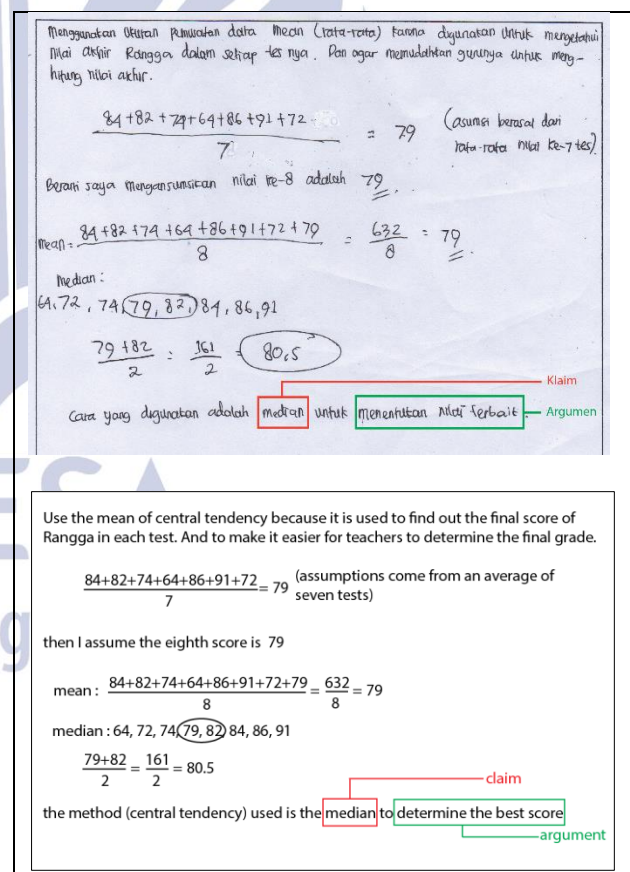 Menggunakan Ukuran Pemusatan data Mean (rata-rata) karena digunakan Untuk mengetahui
Nilai akhir Rangga dalam setiap tes nya. Dan agar memudahkan gurunya untuk meng-
hitung nilai akhir.
84+82+74+64+86+91+72
= 79 (asumsi berasal dari
7 rata-rata nilai ke-7 tes)
Berarti saya mengansumsikan nilai ke-8 adalah 79
Mean = 84+82+74+64+86+91+72+79 = 632 = 79
8 8
Median :
64, 72, 74, 79, 82, 84, 86, 91
79+82 = 161 = 80,5
2 2
Klaim
Cara yang digunakan adalah median untuk menentukan nilai terbaik
Argumen
ESA
g
Use the mean of central tendency because it is used to find out the final score of
Rangga in each test. And to make it easier for teachers to determine the final grade.
84+82+74+64+86+91+72 = 79 (assumptions come from an average of
7 seven tests)
then I assume the eighth score is 79
mean : 84+82+74+64+86+91+72+79 = 632 = 79
8 8
median : 64, 72, 74, 79, 82, 84, 86, 91
79+82 = 161 = 80.5
2 2
claim
the method (central tendency) used is the median to determine the best score
argument